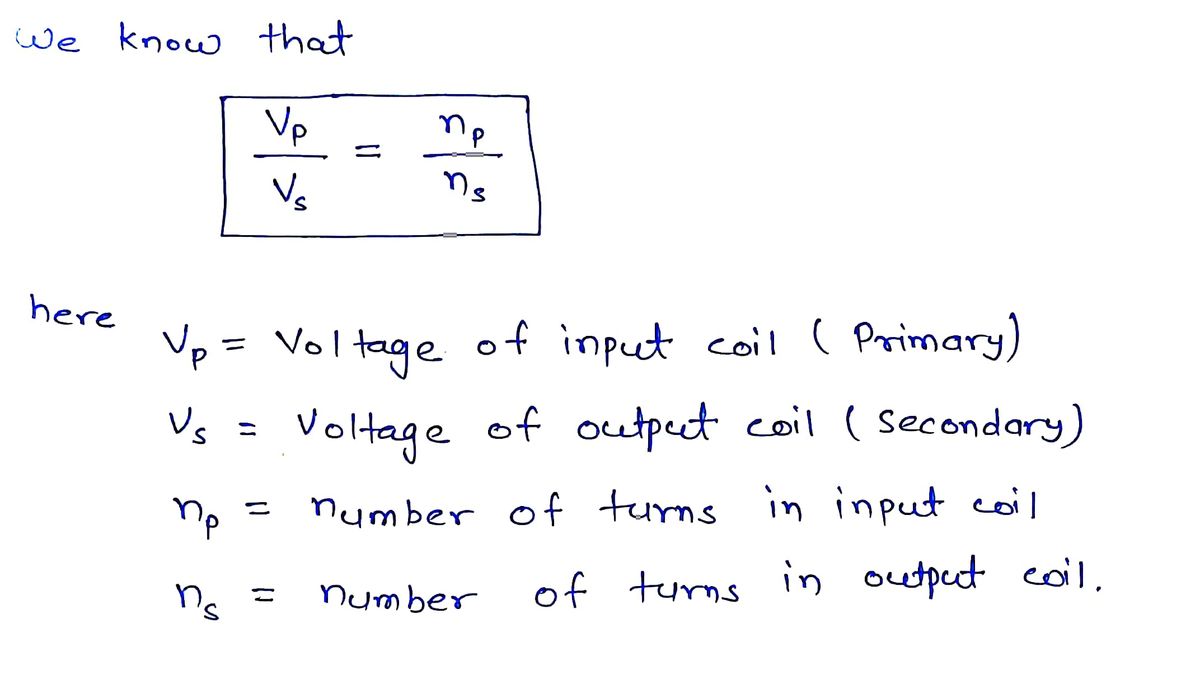 we know that
Vp / Vs = np / ns
here
Vp = Voltage of input coil ( Primary)
Vs = Voltage of output coil ( secondary)
np = number of turns in input coil
ns = number of turns in output coil.